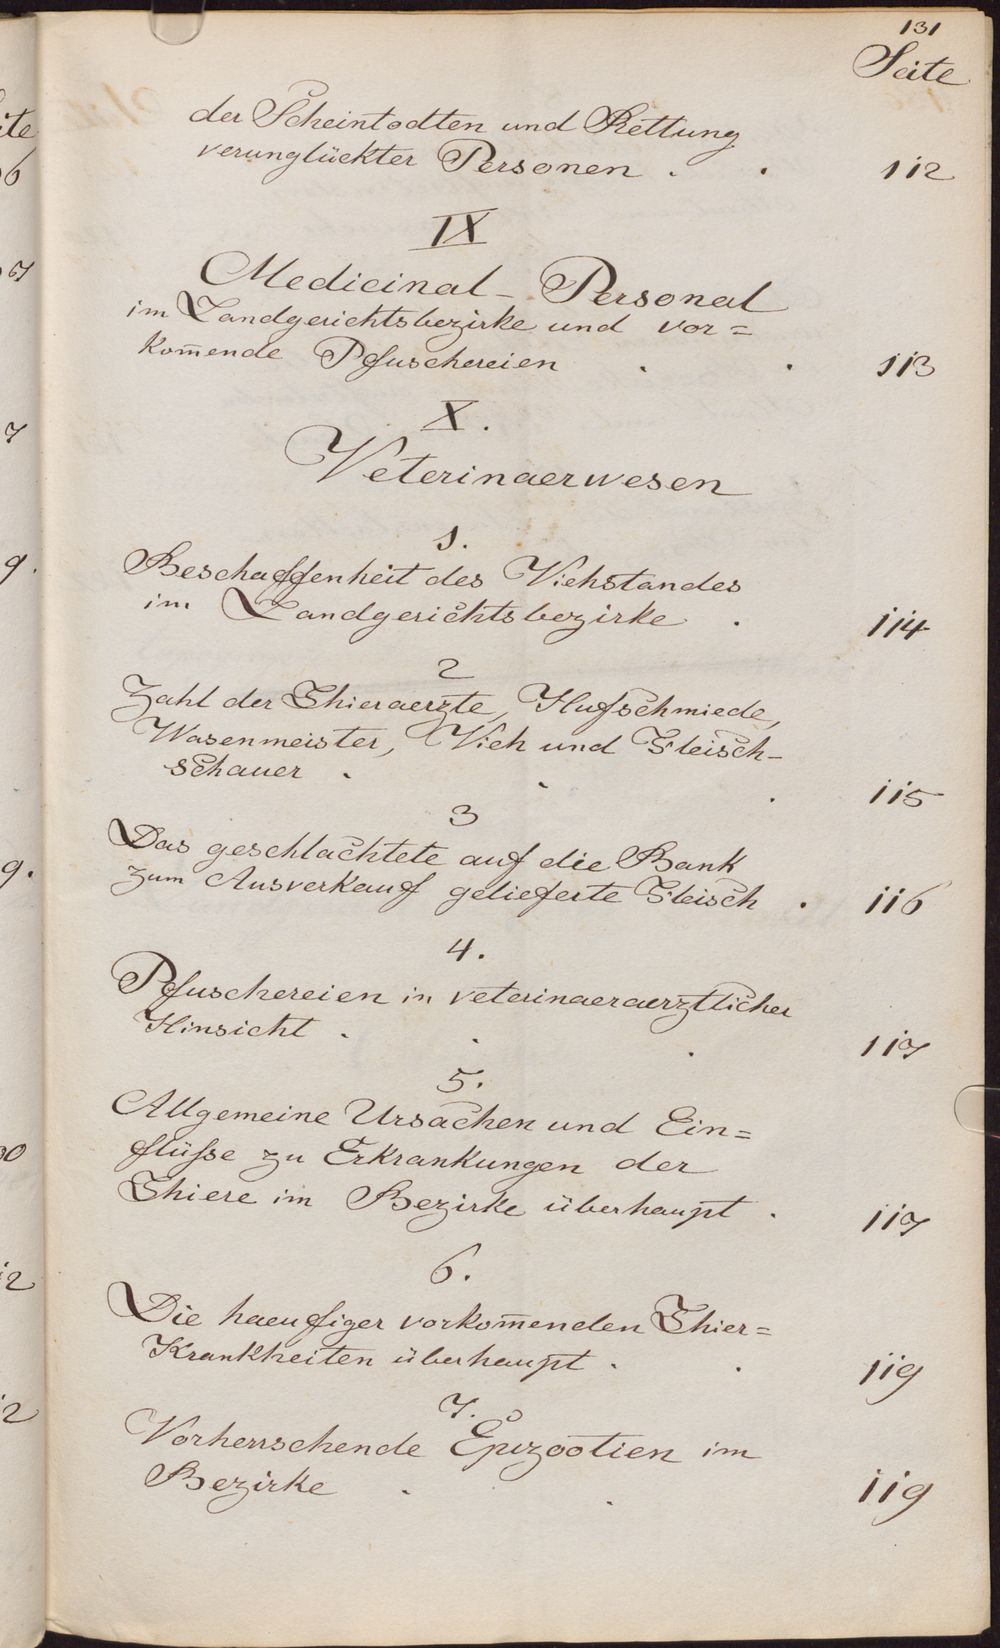 131
Seite
der Scheintodten und Rettung
verunglückter Personen . . 112
IX
Medicinal-Personal
im Landgerichtsbezirke und vor=
kom̅ende Pfuschereien . . 113
X.
Veterinaerwesen
1.
Beschaffenheit des Viehstandes
im Landgerichtsbezirke . 114
2
Zahl der Thieraerzte, Hufschmiede,
Wasenmeister, Vieh und Fleisch-
schauer . . . 115
3
Das geschlachtete auf die Bank
zum Ausverkauf gelieferte Fleisch . 116
4.
Pfuschereien in veterinaeraerztlicher
Hinsicht . . . 117
5.
Allgemeine Ursachen und Ein=
flüſse zu Erkrankungen der
Thiere im Bezirke überhaupt . 117
6.
Die haeufiger vorkom̅enden Thier=
Krankheiten überhaupt . . 119
7.
Vorherrschende Epizootien im
Bezirke . . 119